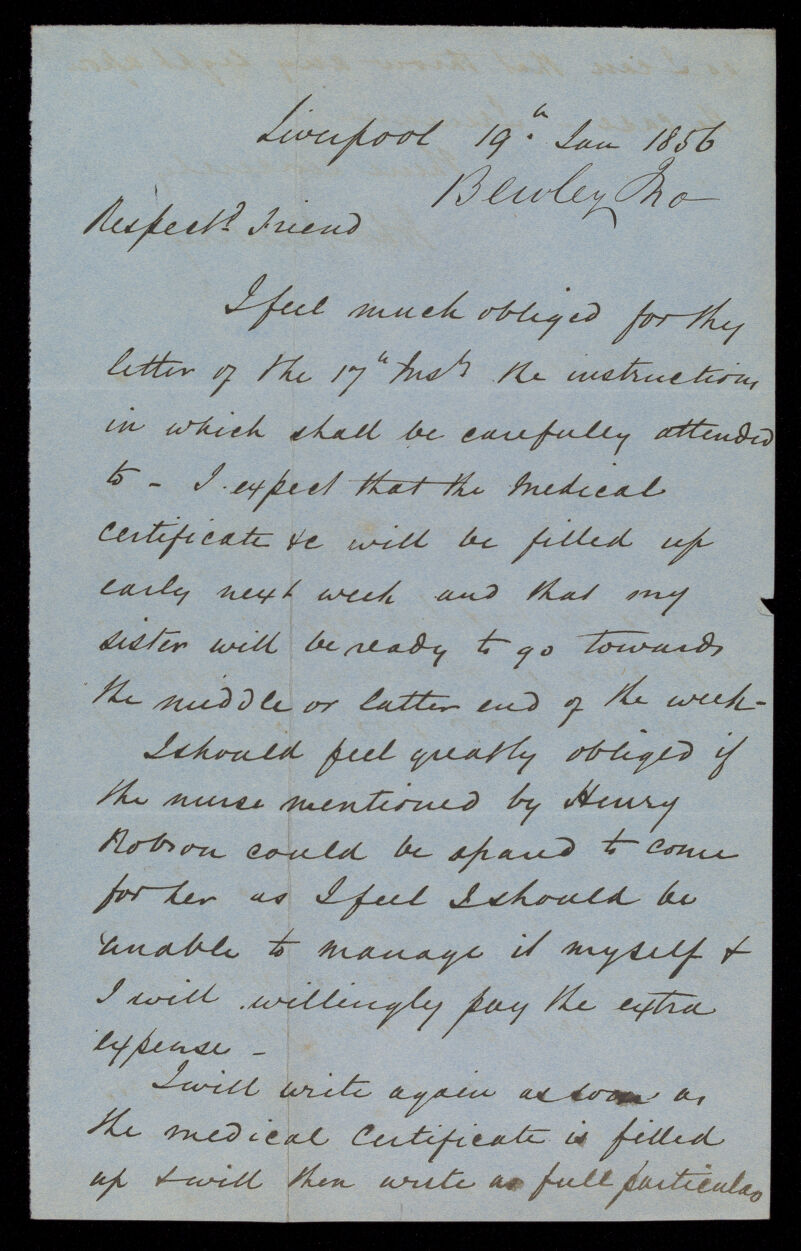 Liverpool 19th Jan 1856
Bewley Jno
Respectd Friend
I feel much obliged for thy
letter of the 17th Inst the instructions
in which shall be carefully attended
to - I expect that the Medical
certificate &c will be filled up
early next week and that my
sister will be ready to go towards
the middle or latter end of the week -
I should feel greatly obliged if
the nurse mentioned by Henry
Robson could be spared to come
for her as I feel I should be
unable to manage it myself &
I will willingly pay the extra
expense -
I will write again as soon as
the medical Certificate is filled
up & will then write as full particulars